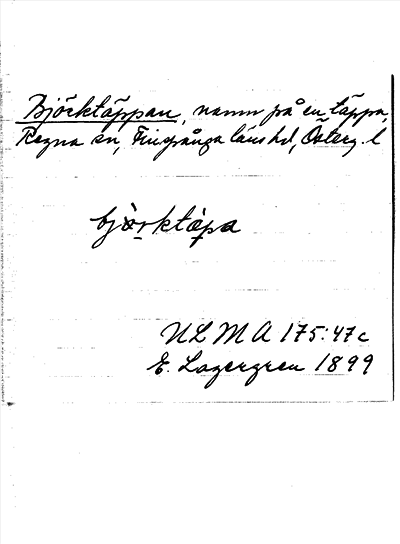 Björktäppan, namn på en täppa,
Regna sn, Finspånga läns hd, Österg. l
bjö̀rktäpa
ULMA 175:47c
E. Lagergren 1899